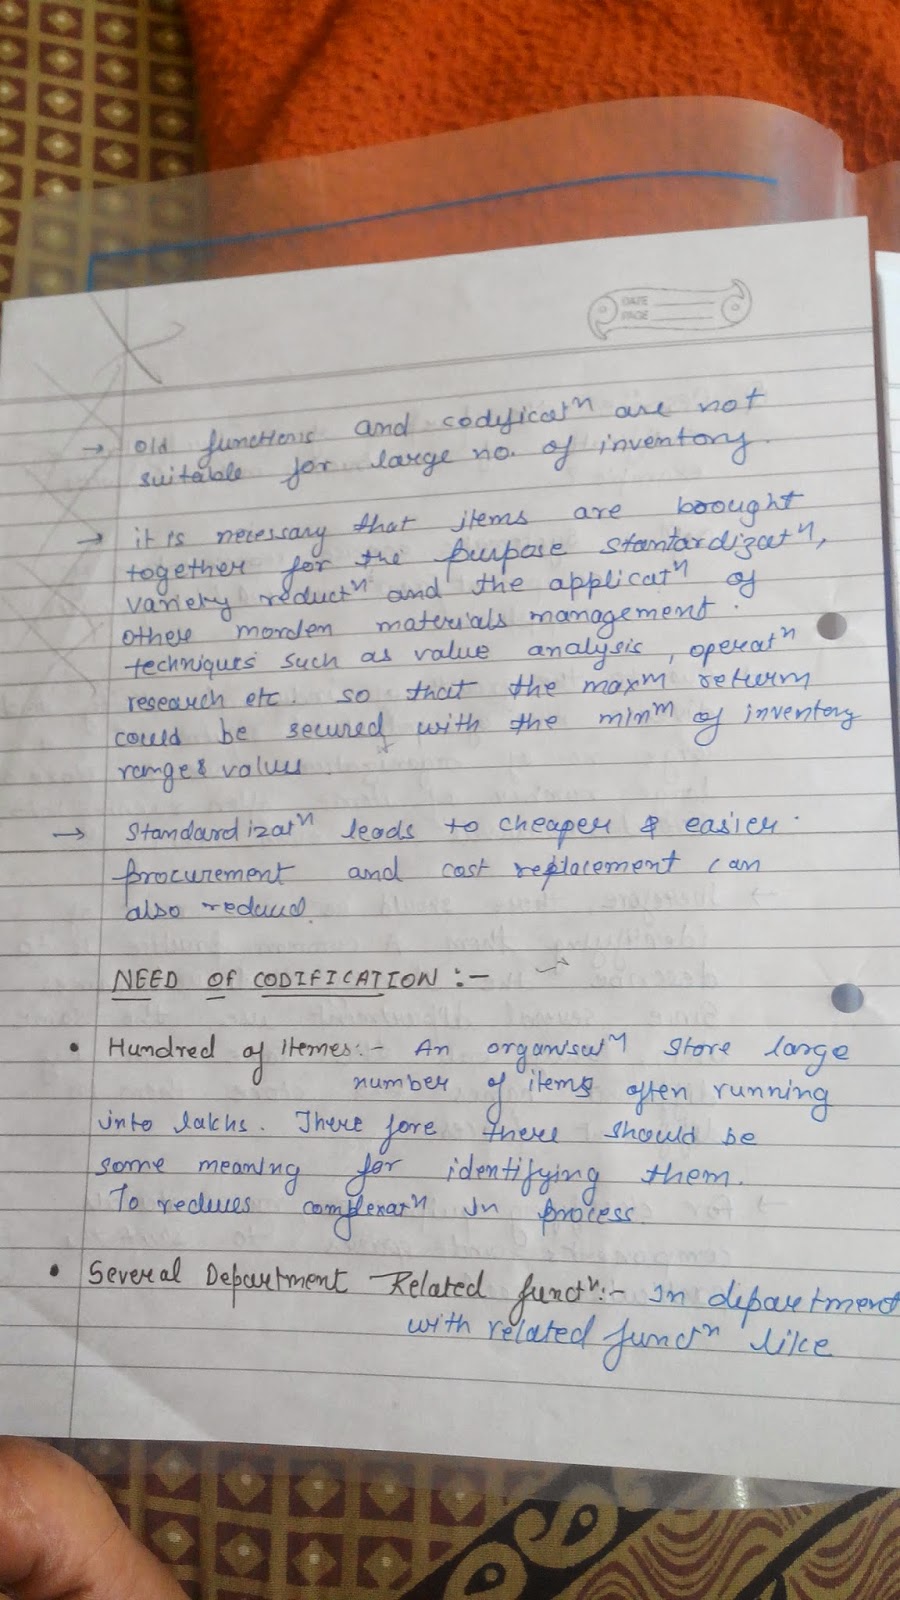 DATE
PAGE
→ Old functions and codificatⁿ are not
suitable for large no. of inventory.
→ it is necessary that items are boought
together for the purpose stantardizatⁿ,
variety reductⁿ and the applicatⁿ of
other morden materials management.
techniques such as value analysis, operatⁿ
research etc. so that the maxᵐ return
could be secured with the minᵐ of inventory
range & values
→ Standardizatⁿ leads to cheaper & easier.
procurement and cost replacement can
also reduced.
NEED OF CODIFICATION :-
• Hundred of itemes:- An organisatⁿ store large
number of items often running
into lakhs. There fore there should be
some meaning for identifying them.
To reduces complexatⁿ in process.
• Several Department Related functⁿ:- In department
with related functⁿ like